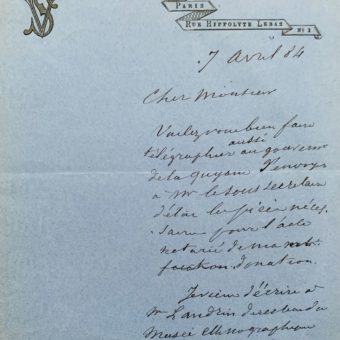 VS
PARIS
RUE HIPPOLYTE LEBAS
No 2
7 Avril 84
Cher Monsieur
Voulez vous bien faire
aussi
télégraphier au gouverne
de la guyane d'envoyer
à Mr le sous secretaire
d'état les pièces néces-
saires pour l'acte
notarié de ma
donation.
Je viens d'écrire à
Mr Landrin
Musée Ethnographique